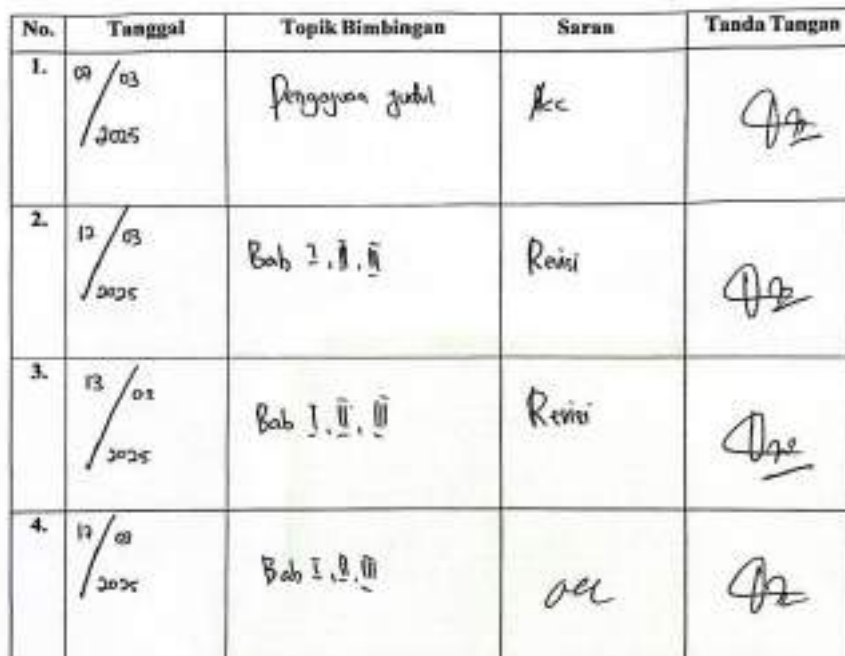 No. Tanggal Topik Bimbingan Saran Tanda Tangan
1. 03 2025 Pengajuan Judul Acc
2. 03 2025 Bab I, II, III Revisi
3. 13 2025 Bab I, II, III Revisi
4. 17 03 2025 Bab I, II, III acc